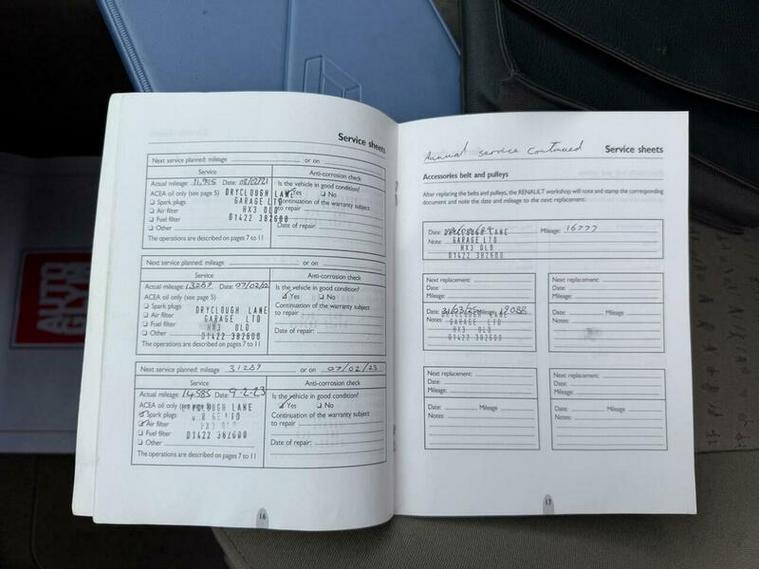 Service sheets
Next service planned: mileage or on
Service
Anti-corrosion check
Actual mileage: 11,915 Date:
Is the vehicle in good condition?
ACEA oil only (see page 5)
Yes No
Spark plugs
Continuation of the warranty subject
Air filter
to repair
Fuel filter
Date of repair:
Other
The operations are described on pages 7 to 11
DRYCLOUGH LANE
GARAGE LTD
HX3 0LD
01422 382600
Next service planned: mileage or on
Service
Anti-corrosion check
Actual mileage: 13259 Date: 07/02/22
Is the vehicle in good condition?
ACEA oil only (see page 5)
Yes No
Spark plugs
Continuation of the warranty subject
Air filter
to repair
Fuel filter
Date of repair:
Other
The operations are described on pages 7 to 11
DRYCLOUGH LANE
GARAGE LTD
HX3 0LD
01422 382600
Next service planned: mileage 31259 or on 07/02/23
Service
Anti-corrosion check
Actual mileage: 14585 Date: 9-2-23
Is the vehicle in good condition?
ACEA oil only (see page 5)
Yes No
Spark plugs
Continuation of the warranty subject
Air filter
to repair
Fuel filter
Date of repair:
Other
The operations are described on pages 7 to 11
LANE
01422 382600
16
Annual service continued
Service sheets
Accessories belt and pulleys
After replacing the belts and pulleys, the RENAULT workshop will note and stamp the corresponding
document and note the date and mileage to the next replacement.
Date: Mileage: 16777
Note
LANE
GARAGE LTD
HX3 0LD
01422 382600
Next replacement:
Date:
Mileage:
Date: 31/03/25 Mileage: 19088
Notes:
GARAGE LTD
HX3 0LD
01422 382600
Next replacement:
Date:
Mileage:
Date: Mileage:
Notes:
Next replacement:
Date:
Mileage:
Date: Mileage
Notes:
Next replacement:
Date:
Mileage:
Date: Mileage
Notes:
17
AUTO
GLYM